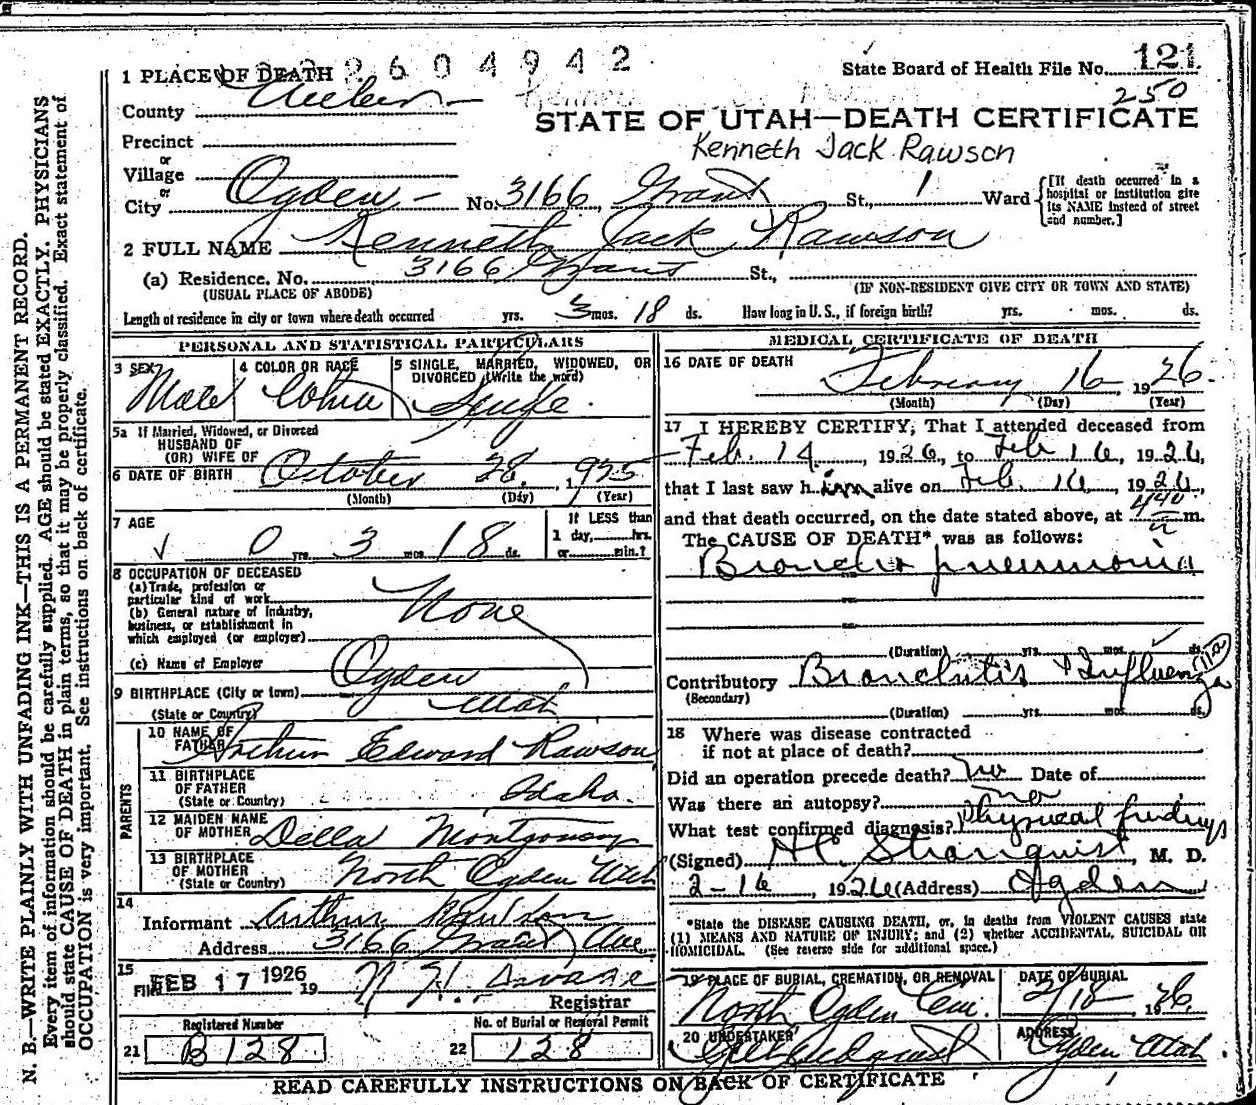 2604942
1 PLACE OF DEATH
State Board of Health File No. 121
250
County Weber
STATE OF UTAH—DEATH CERTIFICATE
Kenneth Jack Rawson
Precinct
or
Village
or
City Ogden No. 3166 Grant St., 1 Ward
[If death occurred in a hospital or institution give its NAME instead of street and number.]
2 FULL NAME Kenneth Jack Rawson
(a) Residence. No. 3166 Grant St.,
(USUAL PLACE OF ABODE) (IF NON-RESIDENT GIVE CITY OR TOWN AND STATE)
Length of residence in city or town where death occurred yrs. 3 mos. 18 ds. How long in U. S., if foreign birth? yrs. mos. ds.
PERSONAL AND STATISTICAL PARTICULARS
3 SEX Male
4 COLOR OR RACE White
5 SINGLE, MARRIED, WIDOWED, OR DIVORCED (Write the word) Single
5a If Married, Widowed, or Divorced
HUSBAND OF
(OR) WIFE OF
6 DATE OF BIRTH October 28, 1925
(Month) (Day) (Year)
7 AGE 0 yrs. 3 mos. 18 ds.
If LESS than
1 day, hrs.
or min.?
8 OCCUPATION OF DECEASED
(a) Trade, profession or
particular kind of work None
(b) General nature of Industry,
business, or establishment in
which employed (or employer)
(c) Name of Employer
9 BIRTHPLACE (City or town) Ogden
(State or Country) Utah
PARENTS
10 NAME OF FATHER Arthur Edward Rawson
11 BIRTHPLACE
OF FATHER
(State or Country) Idaho.
12 MAIDEN NAME
OF MOTHER Della Montgomery
13 BIRTHPLACE
OF MOTHER
(State or Country) North Ogden Utah
14
Informant Arthur Rawson
Address 3166 Grant Ave
15
FILED FEB 17 1926 19
Registrar
Registered Number
21 B 128
No. of Burial or Removal Permit
22 128
MEDICAL CERTIFICATE OF DEATH
16 DATE OF DEATH
February 16 1926.
(Month) (Day) (Year)
17 I HEREBY CERTIFY, That I attended deceased from
Feb. 14, 1926, to Feb 16, 1926,
that I last saw him alive on Feb. 16, 1926,
and that death occurred, on the date stated above, at 440 a m.
The CAUSE OF DEATH* was as follows:
Broncho pneumonia
(Duration) yrs. mos. ds.
Contributory Bronchitis & Influenza 11a
(Secondary)
(Duration) yrs. mos. ds.
18 Where was disease contracted
if not at place of death?
Did an operation precede death? no Date of
Was there an autopsy? no
What test confirmed diagnosis? Physical findings
(Signed) H.C. Stranquist, M. D.
2-16, 1926 (Address) Ogden
*State the DISEASE CAUSING DEATH, or, in deaths from VIOLENT CAUSES state
(1) MEANS AND NATURE OF INJURY; and (2) whether ACCIDENTAL, SUICIDAL OR
HOMICIDAL. (See reverse side for additional space.)
19 PLACE OF BURIAL, CREMATION, OR REMOVAL
North Ogden Cem.
DATE OF BURIAL
2/18 1926.
20 UNDERTAKER
ADDRESS
Ogden Utah
READ CAREFULLY INSTRUCTIONS ON BACK OF CERTIFICATE
N. B.—WRITE PLAINLY WITH UNFADING INK—THIS IS A PERMANENT RECORD.
Every item of information should be carefully supplied. AGE should be stated EXACTLY. PHYSICIANS
should state CAUSE OF DEATH in plain terms, so that it may be properly classified. Exact statement of
OCCUPATION is very important. See instructions on back of certificate.